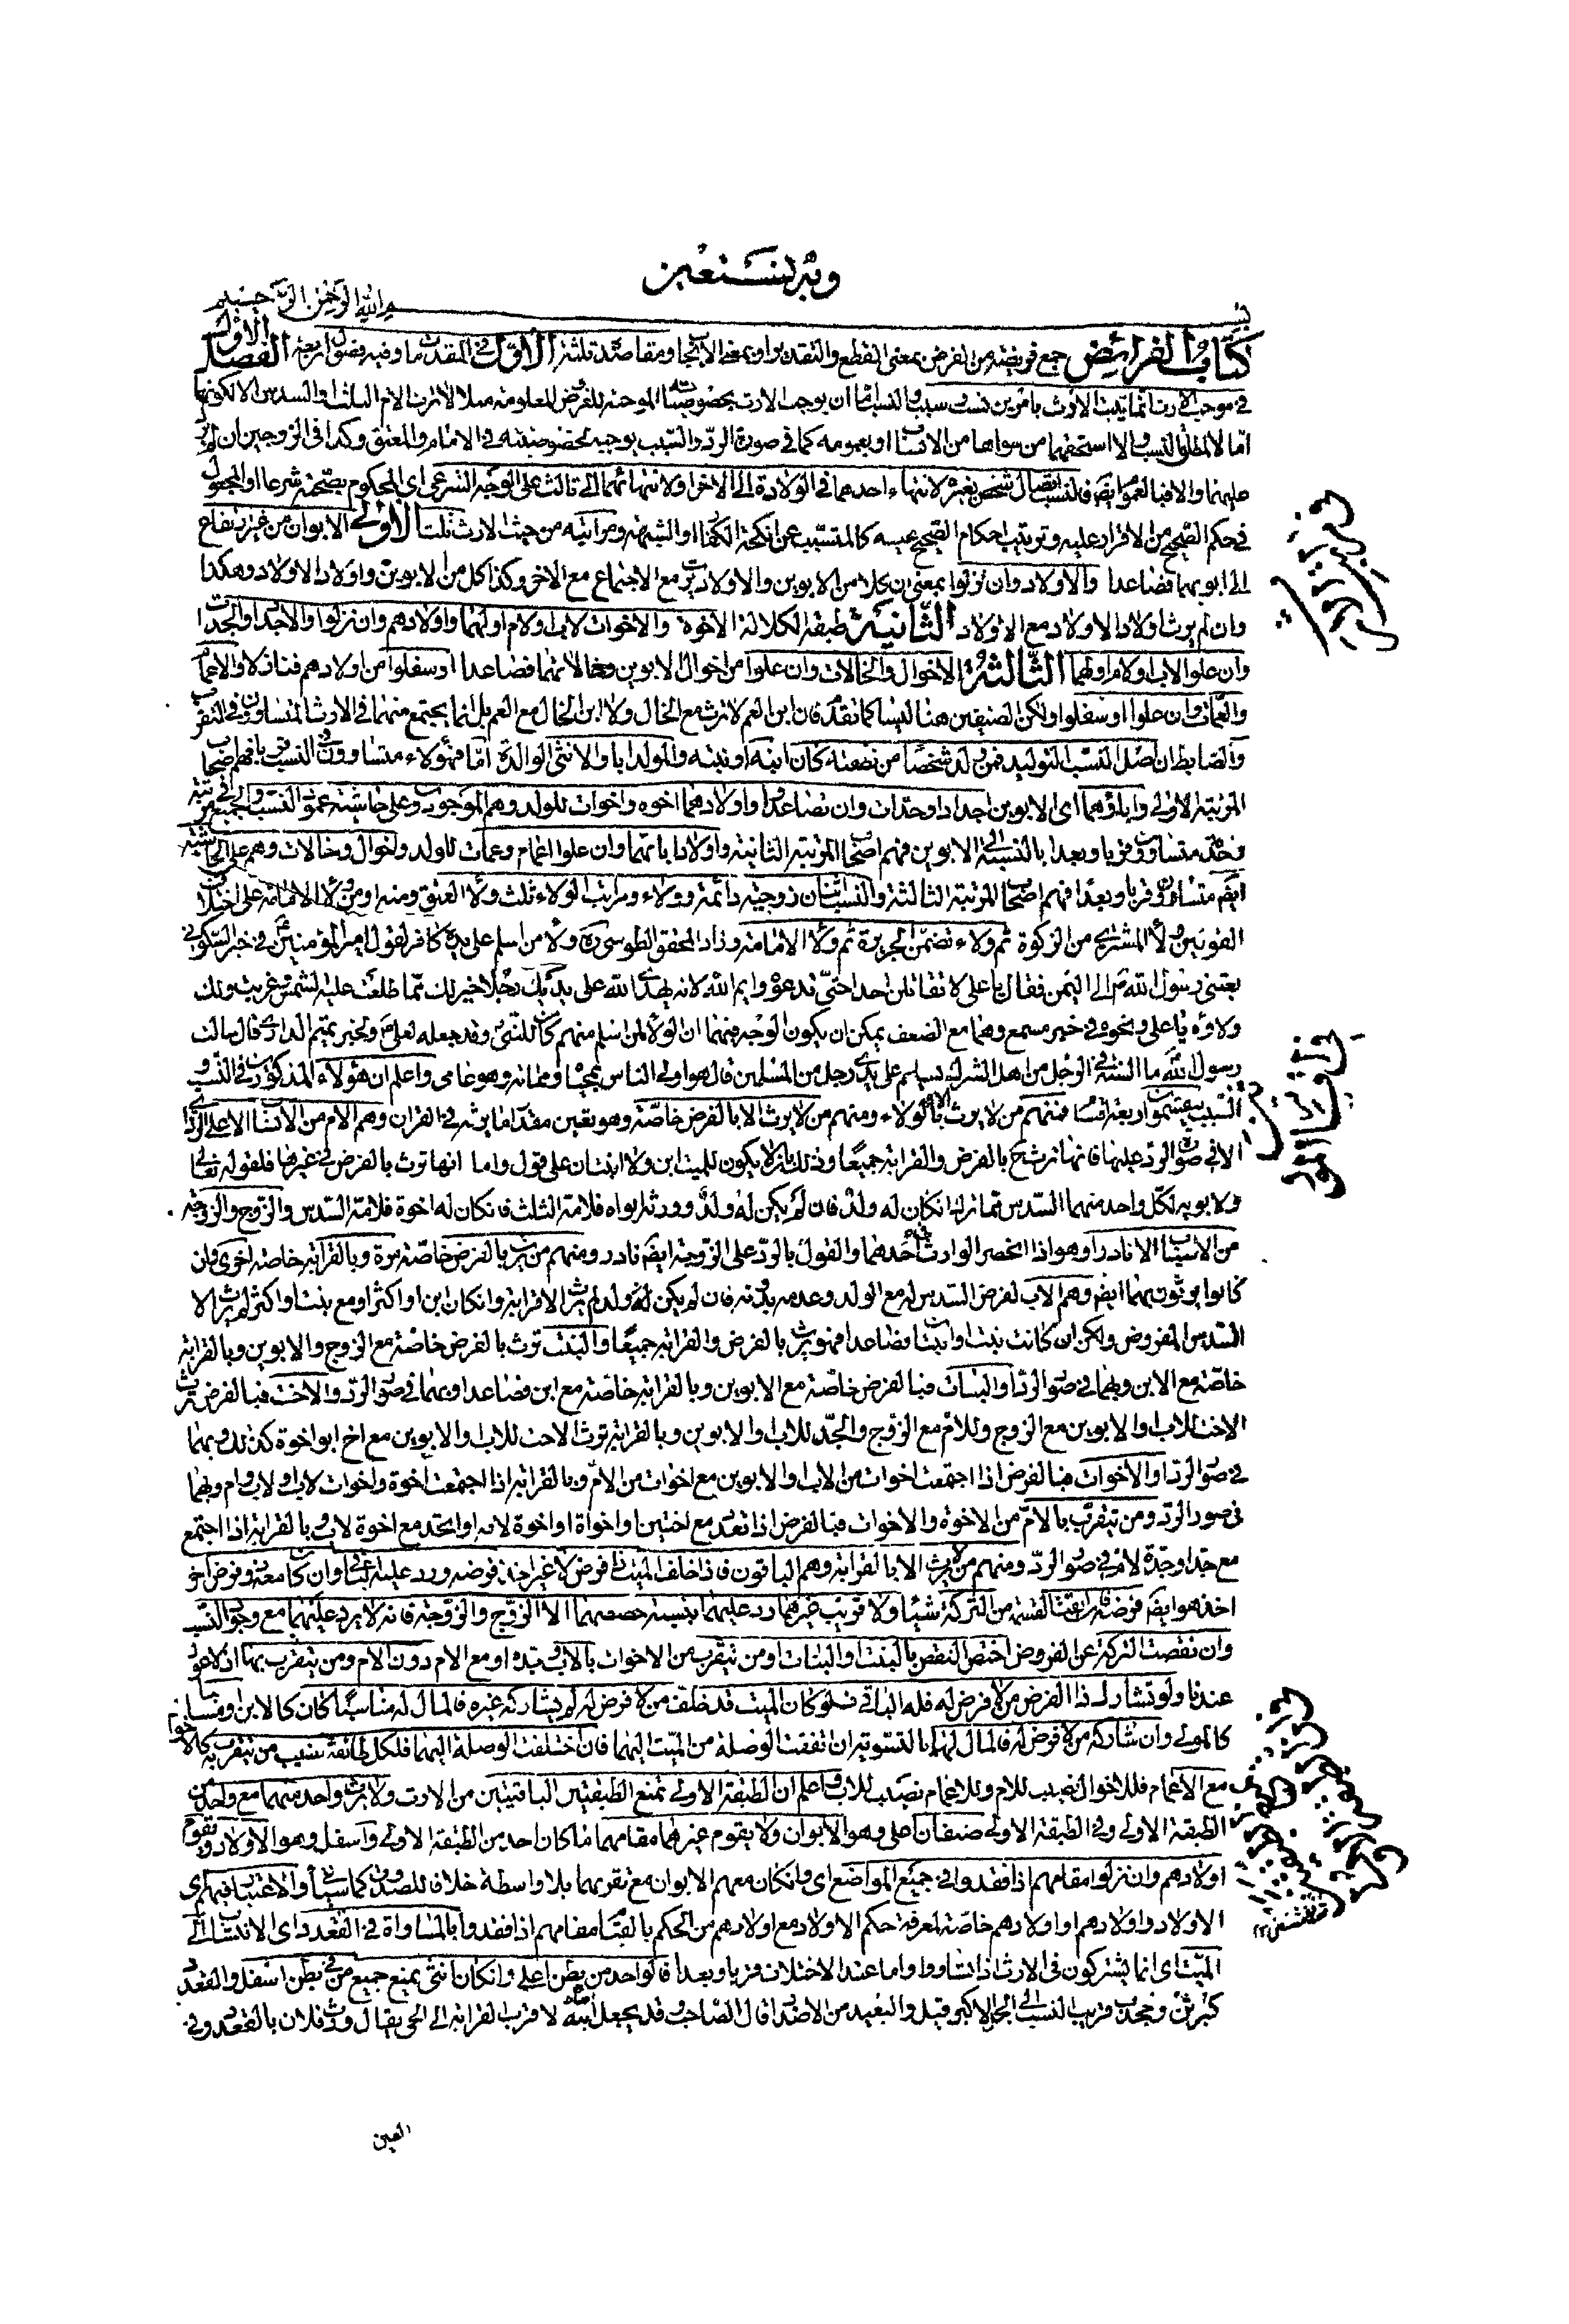 وبه نستعين
بسم الله الرحمن الرحيم
كتاب الفرائض جمع فريضة من الفرض بمعنى القطع والتقدير او بمعنى الايجاب ومقاصده ثلثة الاول في المقدمات وفيه فصول اربعة الفصل الاول
في موجب الارث انما يثبت الارث بامرين نسب وسبب والنسب اما ان يوجب الارث بخصوصيته
اما لا لمطلق النسب والا استحقهما من سواها من الانساب او بعمومه كما في صورة الرد والسبب يوجبه بخصوصيته في الامام والمعتق وكذا في الزوجين ان لم يرد
عليهما والا فبالعموم ايضا فالنسب اتصال شخص بغيره لانتهاء احدهما في الولادة الى الاخر او لانتهائهما الى ثالث على الوجه الشرعي اى المحكوم بصحته شرعا او
في حكم الصحيح من الاقرار عليه وترتيب احكام الصحيح ومراتبه من حيث الارث ثلث الاولى الابوان من غير ارتفاع
الى ابويهما فصاعدا والاولاد وان نزلوا بمعنى ان كلا من الابوين والاولاد يرث مع الاجتماع مع الاخر وكذا كل من الابوين واولاد الاولاد وهكذا
وان لم يرث اولاد الاولاد مع الاولاد الثانية طبقة الكلالة الاخوة والاخوات لاب او لام او لهما واولادهم وان نزلوا والاجداد والجدات
وان علوا لاب او لام او لهما الثالثة الاخوال والخالات وان علوا من اخوال الابوين وخالاتهما فصاعدا او سفلوا من اولادهم فنازلا والاعمام
والعمات وان علوا او سفلوا ولكن الصنفين هنا ليسا كما تقدم فان ابن العم لا يرث مع الخال ولا ابن الخال مع العم بل انما يجتمع منهما في الارث المتساوون في التقرب
والضابط ان اصل النسب التوليد فمن ولد شخصا من نطفته كان ابنه او بنته والمولد ابا والانثى الوالدة اما فهؤلاء متساوون في النسب قربا فهم اصحاب
المرتبة الاولى وابا ؤهما اى الابوين اجداد وجدات وان تصاعدوا واولادهما اخوة واخوات للولد وهم الموجودون على حاشية عمود النسب
متساوون قربا وبعدا بالنسبة الى الابوين فهم اصحاب المرتبة الثانية واولاد ابائهما وان علوا اعمام وعمات للولد واخوال وخالات وهم على الحاشية
ايضا متساوون قربا وبعدا فهم اصحاب المرتبة الثالثة والسبب اثنان زوجية دائمة وولاء ومراتب الولاء ثلث ولاء العتق ومنه او من ولاء الامامة على اختلاف
القولين ولاء المشترى من الزكوة ثم ولاء تضمن الجريرة ثم ولاء الامامة وزاد المحقق الطوسى ره ولاء من اسلم على يده كافر لقول امير المؤمنين في خبر السكونى
بعثنى رسول الله ص الى اليمن فقال يا على لا تقاتلن احدا حتى تدعوه وايم الله لان يهدى الله على يديك رجلا خير لك مما طلعت عليه الشمس وغربت ولك
ولاؤه يا على ونحوه في خبر مسمع وهما مع الضعف يمكن ان يكون الوجه فيهما ان الولاء لمن اسلم منهم كان للنبى ص وقد جعله لعلى ع ولخبر تميم الدارى قال سالت
رسول الله ما السنة في الرجل من اهل الشرك يسلم على يدى رجل من المسلمين قال هو اولى الناس بمحياه ومماته وهو عامى واعلم ان هؤلاء المذكورين في النسب و
السبب ينقسمون اربعة اقسام فمنهم من لا يرث الا بالولاء ومنهم من لا يرث الا بالفرض خاصة وهو تعيين مقدار ما يرثه في القران وهم الام من الانساب الا على الرد
الا في صورة الرد عليها فانها ترث ح بالفرض والقرابة جميعا وذلك بان لا يكون للميت ابن ولا ابنتان على قول واما انها ترث بالفرض في غيرها فلقوله تعالى
ولابويه لكل واحد منهما السدس مما ترك ان كان له ولد فان لم يكن له ولد وورثه ابواه فلامه الثلث فان كان له اخوة فلامه السدس والزوج والزوجة
من الاسباب الا نادرا وهو اذا انحصر الوارث في احدهما والقول بالرد على الزوجية ايضا نادر ومنهم من يرث بالفرض خاصة مرة وبالقرابة خاصة اخرى وان
كانوا يرثون بهما ايضا وهم الاب لفرض السدس له مع الولد وعدمه بدونه فان لم يكن له ولد لم يرث الا قرابة وان كان ابن او اكثر او مع بنت او اكثر لم يرث الا
السدس المفروض ولكن ان كانت بنت او بنتان فصاعدا فهو يرث بالفرض والقرابة جميعا والبنت ترث بالفرض خاصة مع الزوج والابوين وبالقرابة
خاصة مع الابن وبهما في صور الرد والبنات فبالفرض خاصة مع الابوين وبالقرابة خاصة مع ابن فصاعدا وبهما في صور الرد والاخت فبالفرض ترث
الاخت للاب والابوين مع الزوج وللام مع الزوج والجد للاب والابوين وبالقرابة ترث الاخت للاب والابوين مع اخ او اخوة كذلك وبهما
في صور الرد والاخوات فبالفرض اذا اجتمعت اخوات من الاب والابوين مع اخوات من الام وبالقرابة اذا اجتمعت اخوة واخوات لاب او لاب وام وبهما
في صور الرد ومن يتقرب بالام من الاخوة والاخوات فبالفرض اذا تعدد مع اختين او اخوات او اخوة لاب او اتحد مع اخوة لاب وبالقرابة اذا اجتمع
مع جد او جدة لام وفي صور الرد ومنهم من لا يرث الا بالقرابة وهم الباقون فاذا خلف الميت ذا فرض لا غير اخذ فرضه ورد عليه الباقى وان كان معه ذو فرض اخر
اخذ هو ايضا فرضه فان ابقت القسمة من التركة شيئا ولا قريب غيرهما رد عليهما بنسبة حصصهما الا الزوج والزوجة فانه لا يرد عليهما مع وجود النسب
وان نقصت التركة عن الفروض اختص النقص بالبنت والبنات او من يتقرب من الاخوات بالاب وحده او مع الام دون الام ومن يتقرب بها اذ لا عول
عندنا ولو تشارك ذا الفرض من لا فرض له فله الباقى فلو كان الميت قد خلف من لا فرض له لم يشاركه غيره فالمال له مناسبا كان كالابن او مسابيا
كالمولى وان شاركه من لا فرض له فالمال لهما بالتسوية ان اتفقت الوصلة من الميت اليهما فان اختلفت الوصلة اليهما فلكل طائفة نصيب من يتقرب به كالاخوال
مع الاعمام فللاخوال نصيب للام وللاعمام نصيب للاب واعلم ان الطبقة الاولى تمنع الطبقتين الباقيتين من الارث ولا يرث واحد منهما مع واحد من
الطبقة الاولى وفي الطبقة الاولى صنفان اعلى وهو الابوان ولا يقوم غيرهما مقامهما ما كان احد من الطبقة الاولى واسفل وهو الاولاد ويقوم
اولادهم وان نزلوا مقامهم اذا فقدوا في جميع المواضع اى وان كان معهم الابوان مع تقربهما بلا واسطة خلافا للصدوق كما سياتى والاعتبار فيهم اى
الاولاد واولادهم او اولادهم خاصة لمعرفة حكم الاولاد مع اولادهم من الحكم بالقيام مقامهم اذا فقدوا بالمساواة في القعدد اى الانتساب الى
الميت اى انما يشتركون في الارث اذا تساووا واما عند الاختلاف قربا وبعدا فالواحد من بطن اعلى وان كان انثى يمنع جميع من في بطن اسفل والقعدد
كبرثن وجندب قريب النسب الى الجد الاكبر وقيل والبعيد من الاضداد قال الصاحب وقد يجعل لا قرب القرابة الى الحى يقال ورث فلان بالقعدد وفي
العين